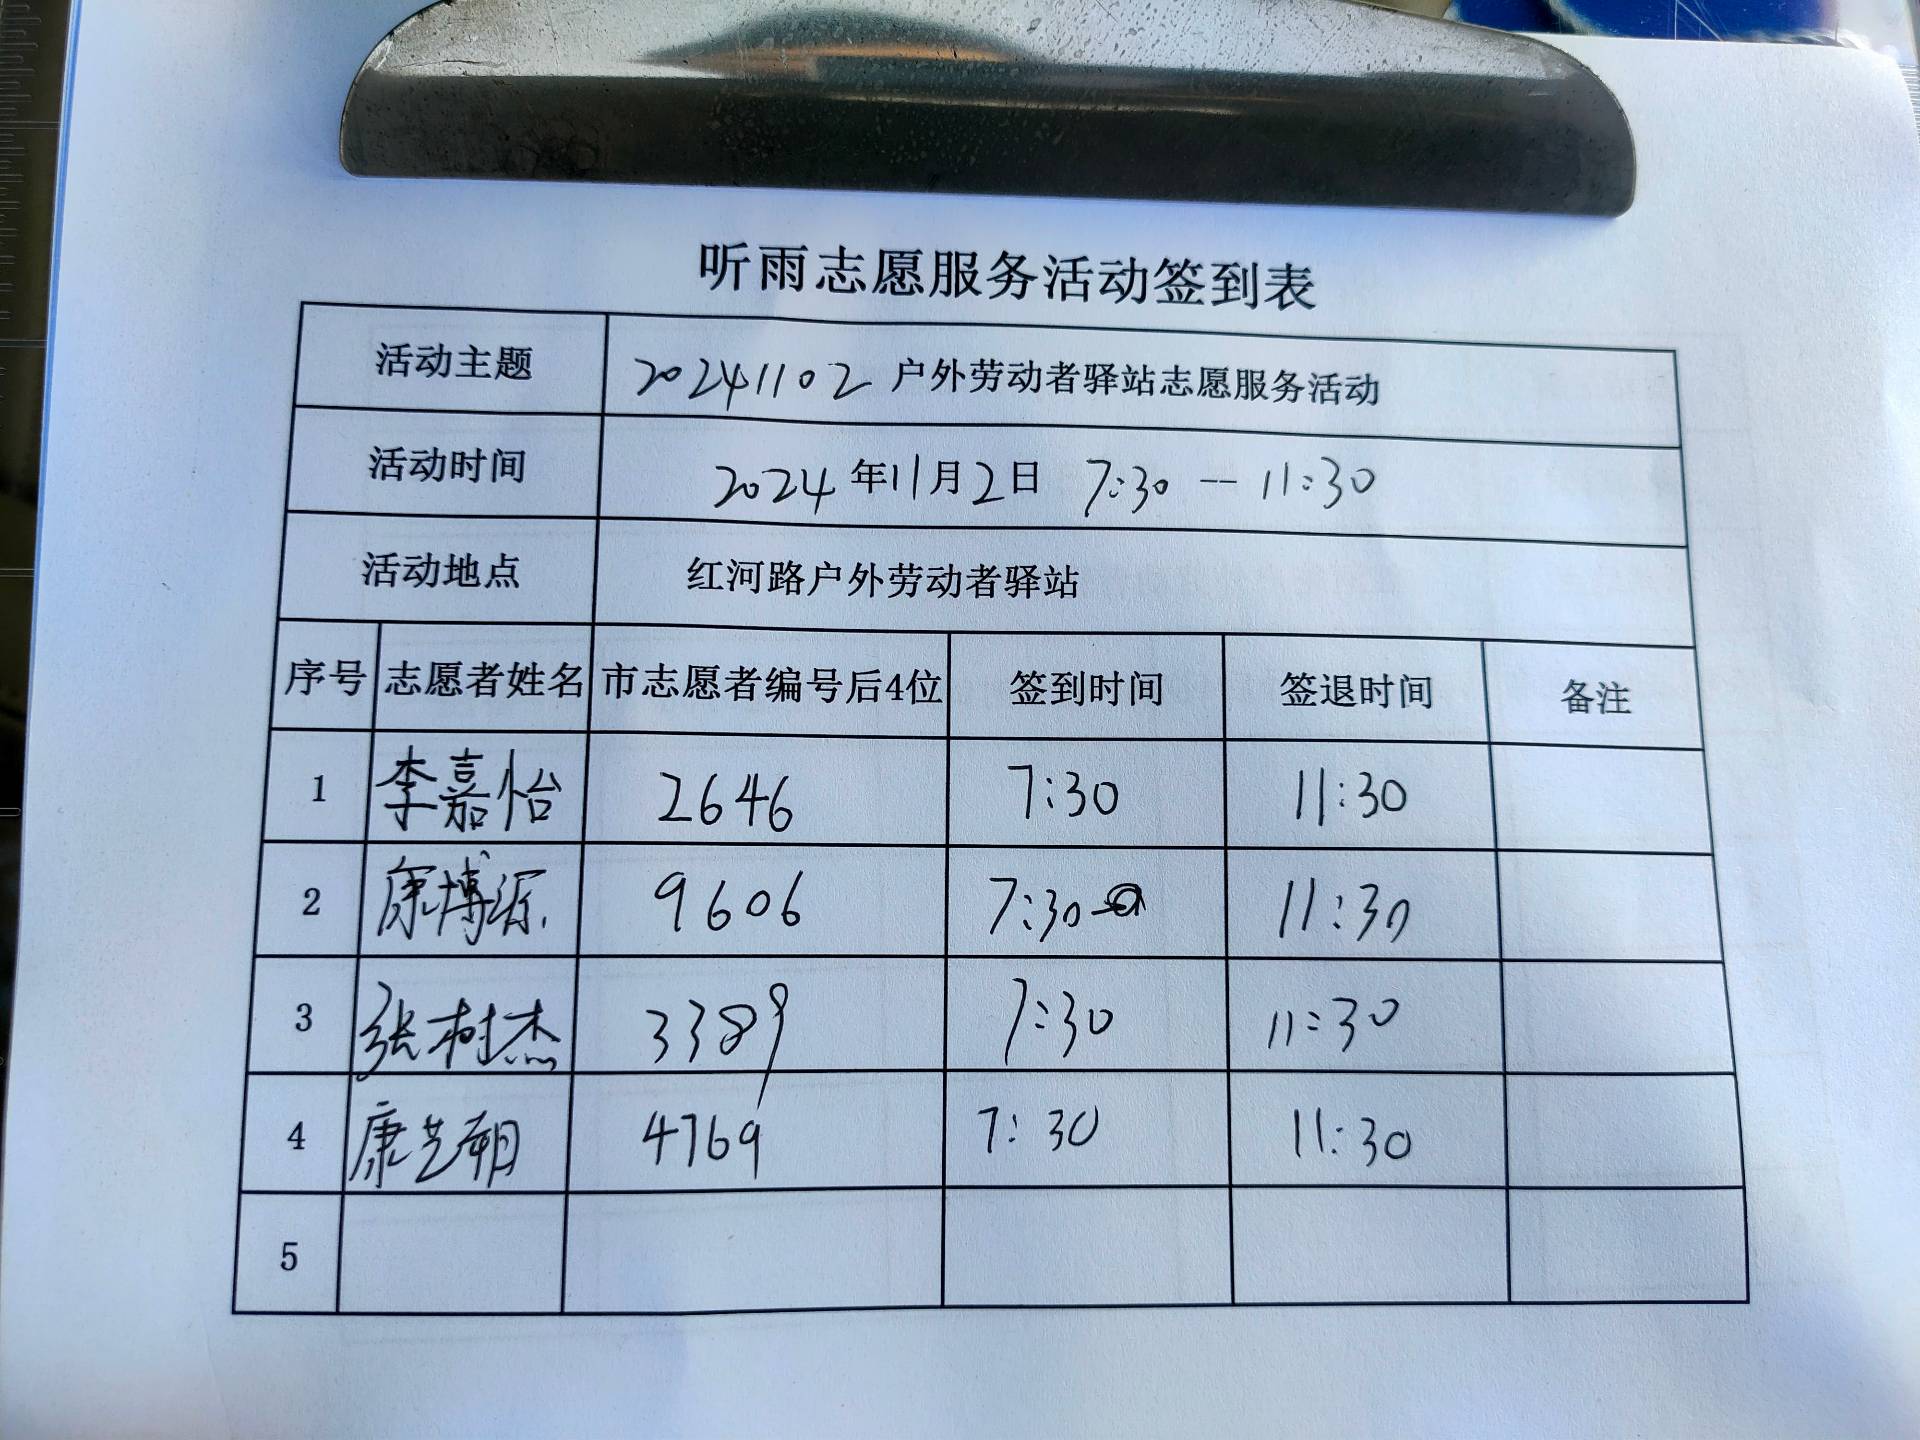 听雨志愿服务活动签到表
活动主题 20241102 户外劳动者驿站志愿服务活动
活动时间 2024年11月2日 7:30 -- 11:30
活动地点 红河路户外劳动者驿站
序号 志愿者姓名 市志愿者编号后4位 签到时间 签退时间 备注
1 李嘉怡 2646 7:30 11:30
2 康博源 9606 7:30 11:30
3 张树杰 3389 7:30 11:30
4 康艺朝 4769 7:30 11:30
5